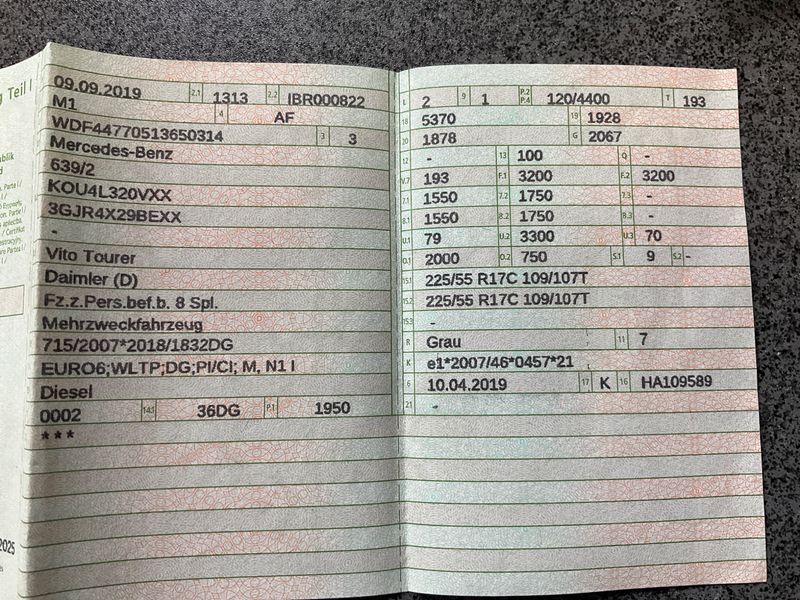 g Teil I
09.09.2019 2.1 1313 2.2 IBR000822
M1 4 AF
WDF44770513650314 3 3
Mercedes-Benz
639/2
KOU4L320VXX
3GJR4X29BEXX
-
Vito Tourer
Daimler (D)
Fz.z.Pers.bef.b. 8 Spl.
Mehrzweckfahrzeug
715/2007*2018/1832DG
EURO6;WLTP;DG;PI/CI; M, N1 I
Diesel
0002 14.1 36DG P.1 1950
***
L 2 9 1 P.2 P.4 120/4400 T 193
18 5370 19 1928
20 1878 G 2067
12 - 13 100 Q -
V.7 193 F.1 3200 F.2 3200
7.1 1550 7.2 1750 7.3 -
8.1 1550 8.2 1750 8.3 -
U.1 79 U.2 3300 U.3 70
O.1 2000 O.2 750 S.1 9 S.2 -
15.1 225/55 R17C 109/107T
15.2 225/55 R17C 109/107T
15.3 -
R Grau 11 7
K e1*2007/46*0457*21
6 10.04.2019 17 K 16 HA109589
21 -
2025